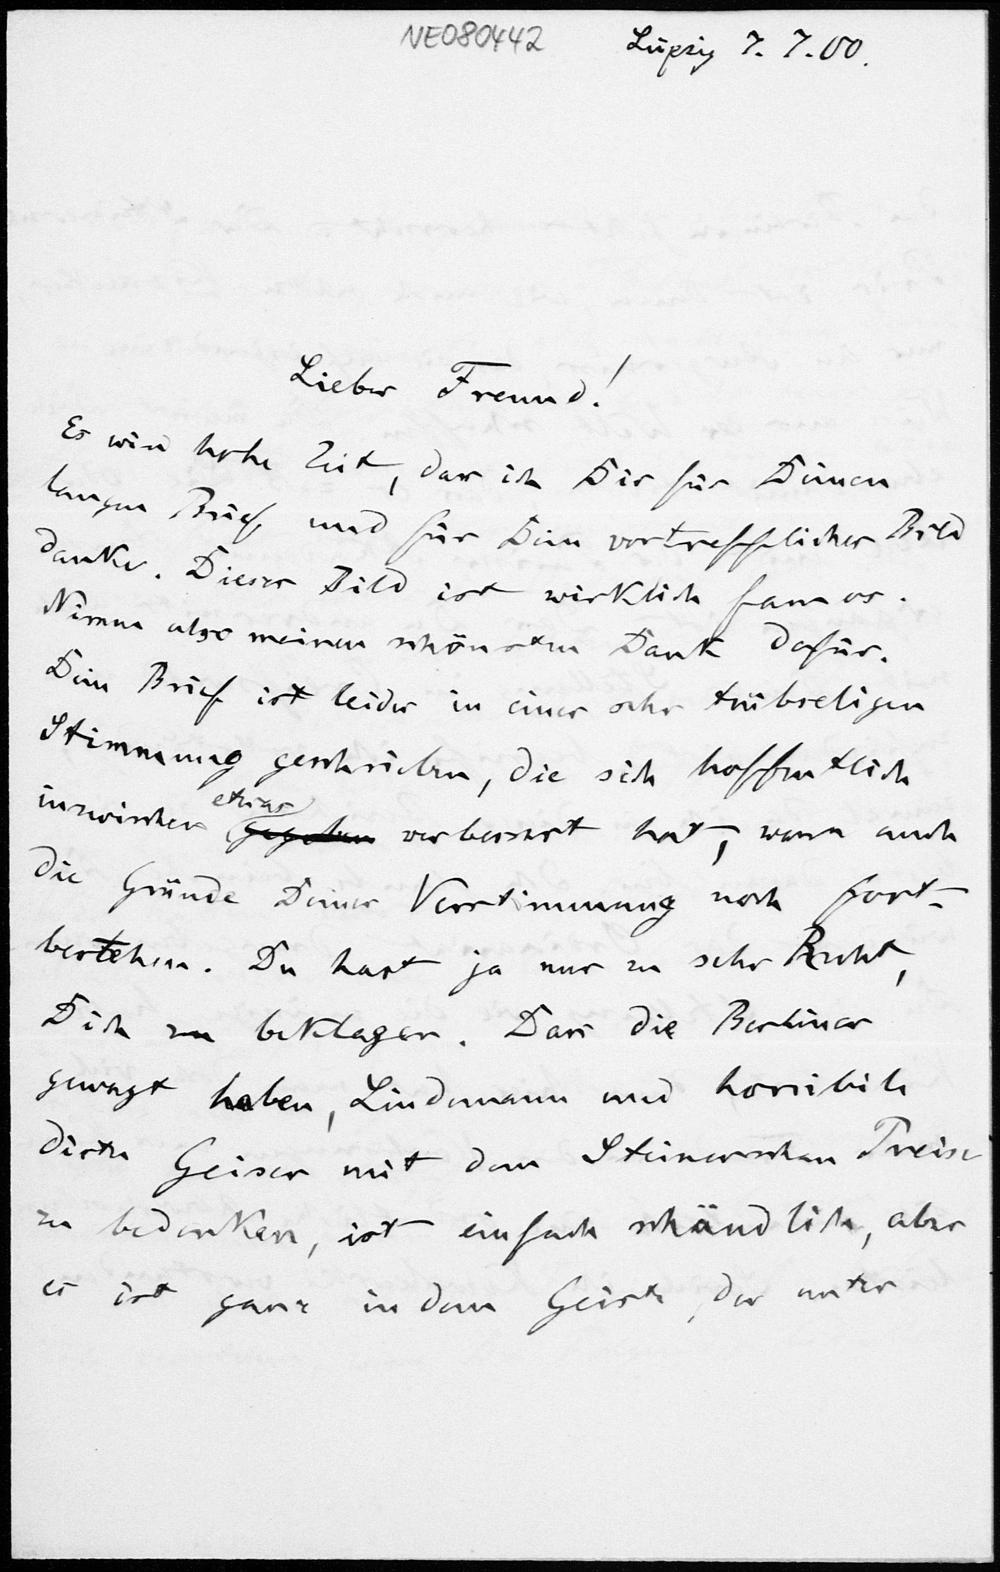 NE080442
Leipzig 7. 7. 00.
Lieber Freund!
Es wird hohe Zeit, dass ich Dir für Deinen
langen Brief und für Dein vortreffliches Bild
danke. Dieses Bild ist wirklich famos.
Nimm also meinen schönsten Dank dafür.
Dein Brief ist leider in einer sehr trübseligen
Stimmung geschrieben, die sich hoffentlich
inzwischen etwas verbessert hat, wenn auch
die Gründe Deiner Verstimmung noch fort-
bestehen. Du hast ja nur zu sehr Recht,
Dich zu beklagen. Dass die Berliner
gewagt haben, Lindemann und horribile
dictu Geiser mit dem Steinerschen Preise
zu bedenken, ist einfach schändlich, aber
es ist ganz in dem Geiste, der unter